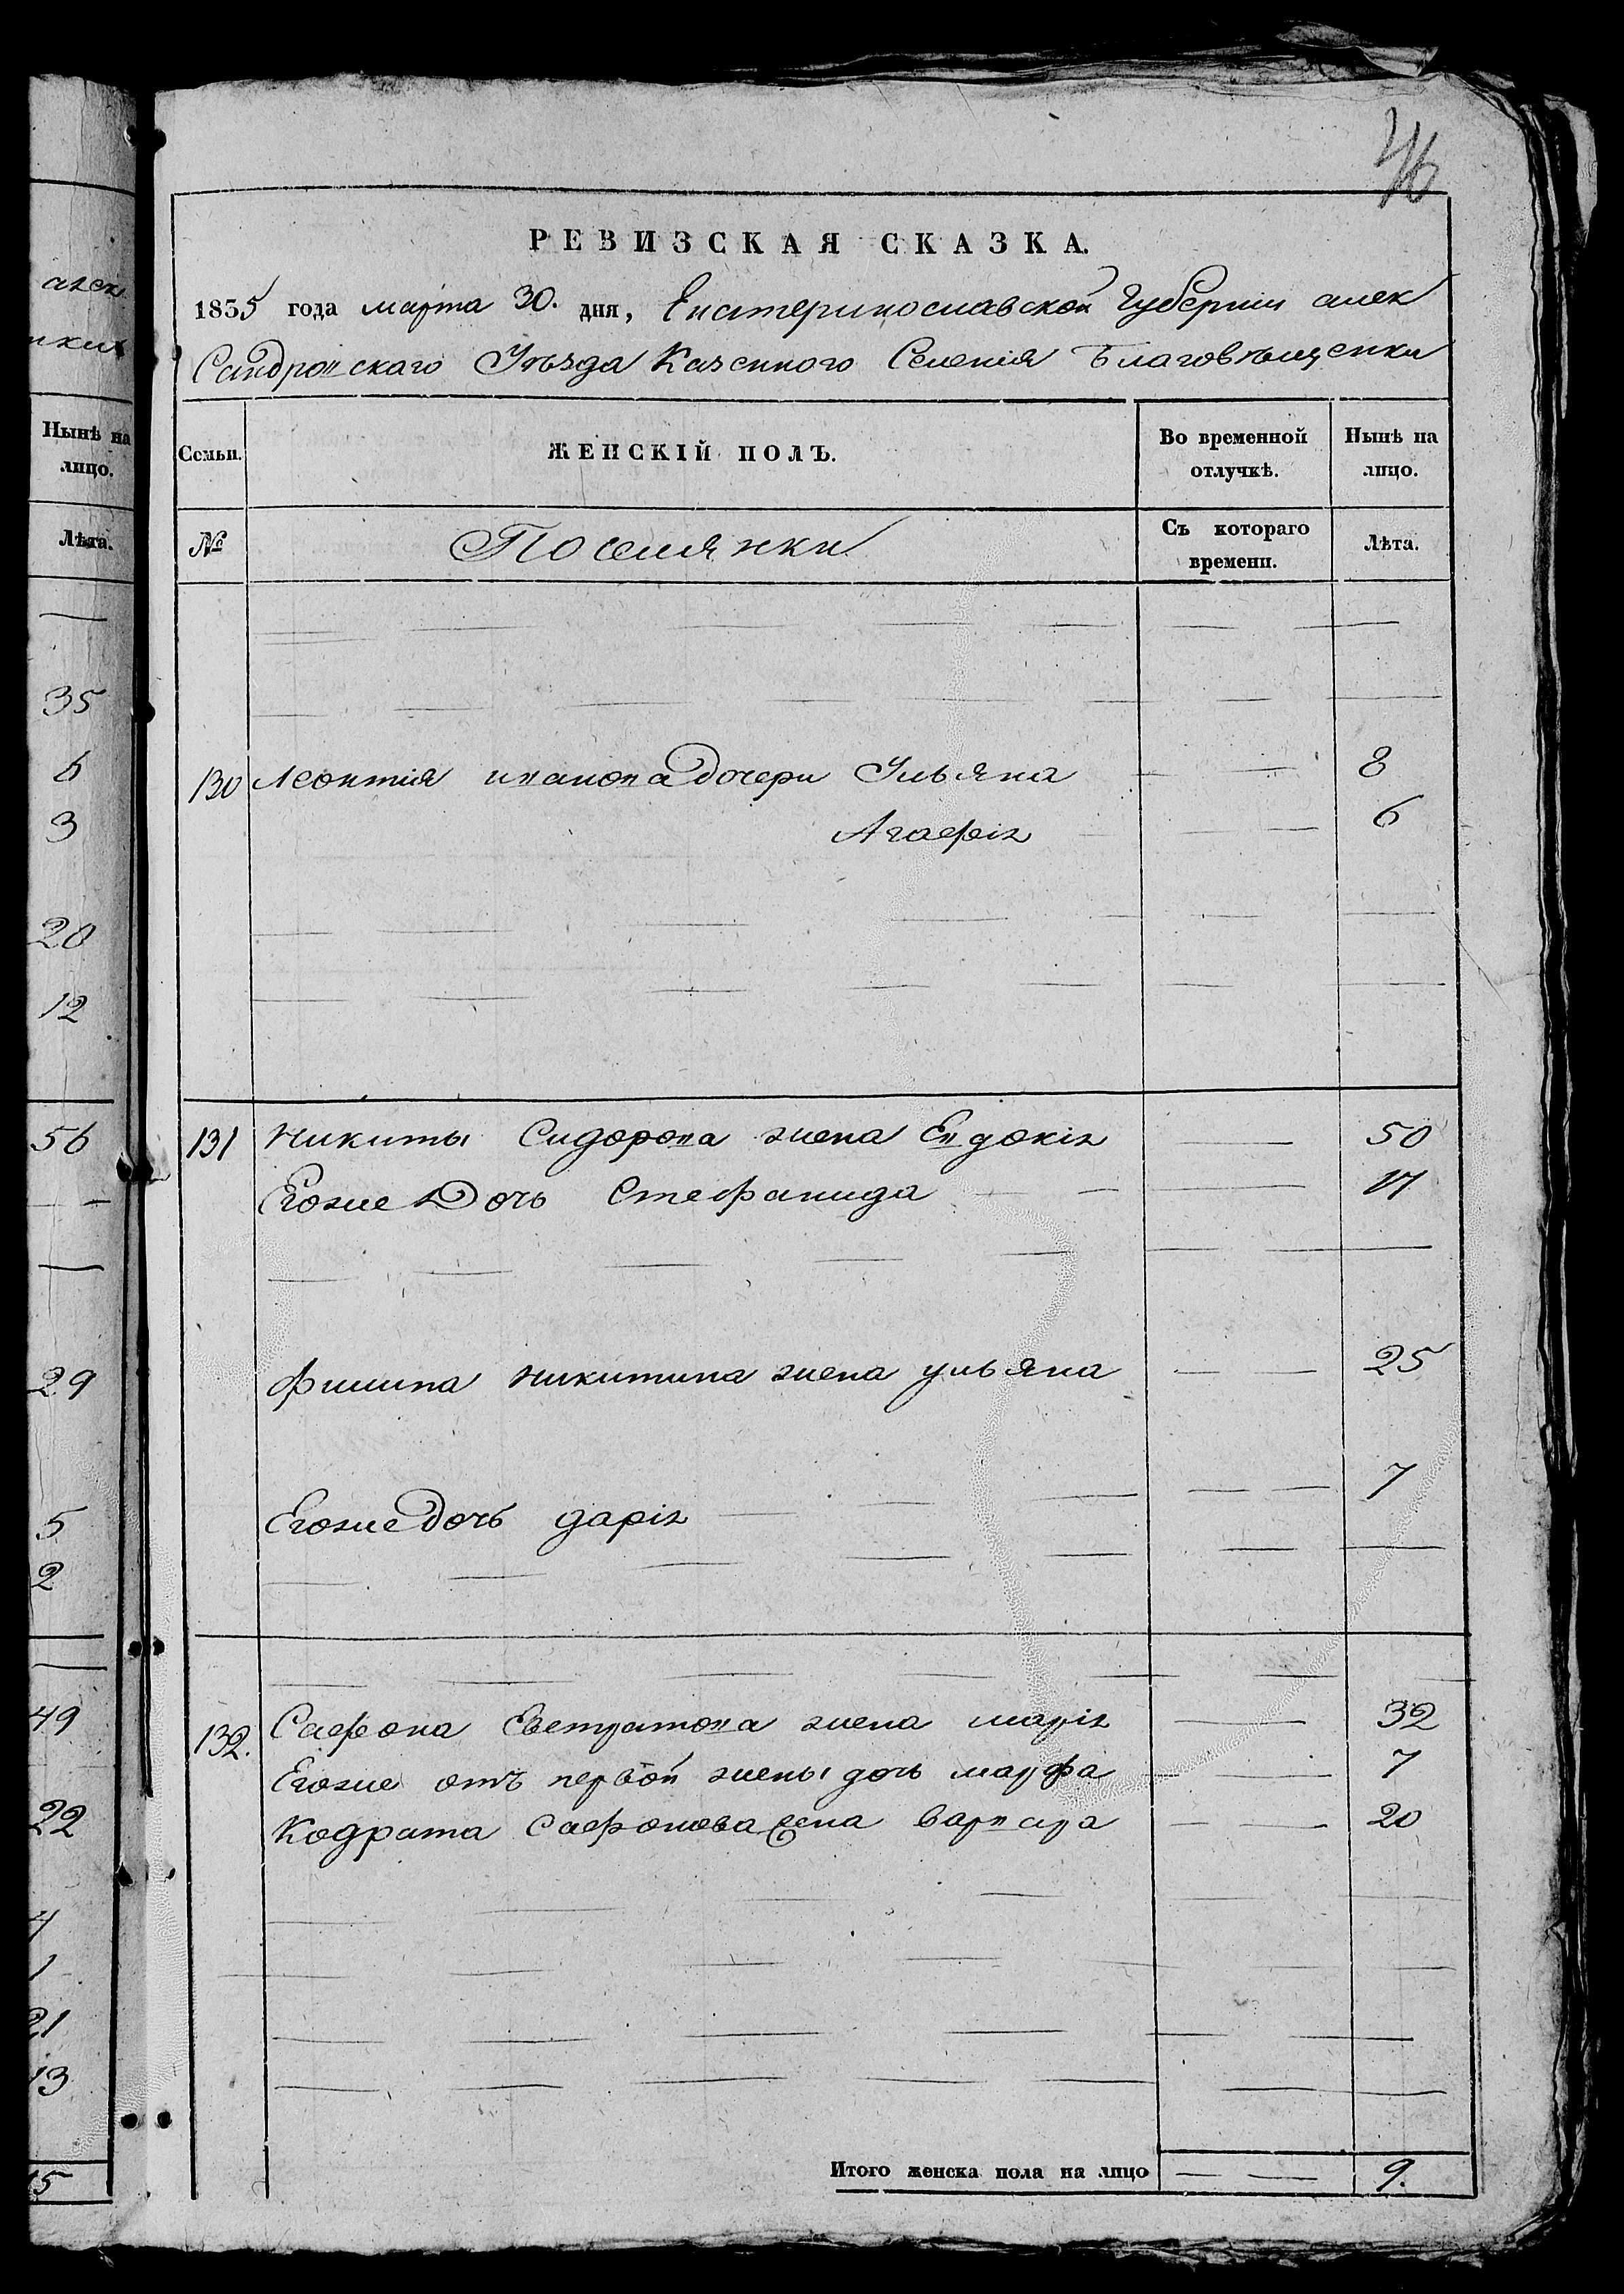 46
РЕВИЗСКАЯ СКАЗКА.
1835 года марта 30. дня, Екатеринославской Губерніи алек
Сандровскаго Уѣзда Казенного Селенія Благовѣщенки
Семьи. ЖЕНСКІЙ ПОЛЪ. Во временной отлучкѣ. Нынѣ на лицо.
№ Поселянки Съ котораго времени. Лѣта.
130 Леонтія иванова дочери Ульяна 8
Агафія 6
131 Никиты Сидорова жена Евдокія 50
Егоже Дочь Стефанида 17
Филипа Никитина жена ульяна 25
Егоже дочь дарія 7
132. Сафона Евстратова жена марія 32
Егоже отъ первой жены дочь марфа 7
Кодрата Сафонова жена варвара 20
Итого женска пола на лицо 9.
Нынѣ на
лицо.
Лѣта.
35
6
3
20
12
56
29
5
2
49
22
4
1
21
13
15